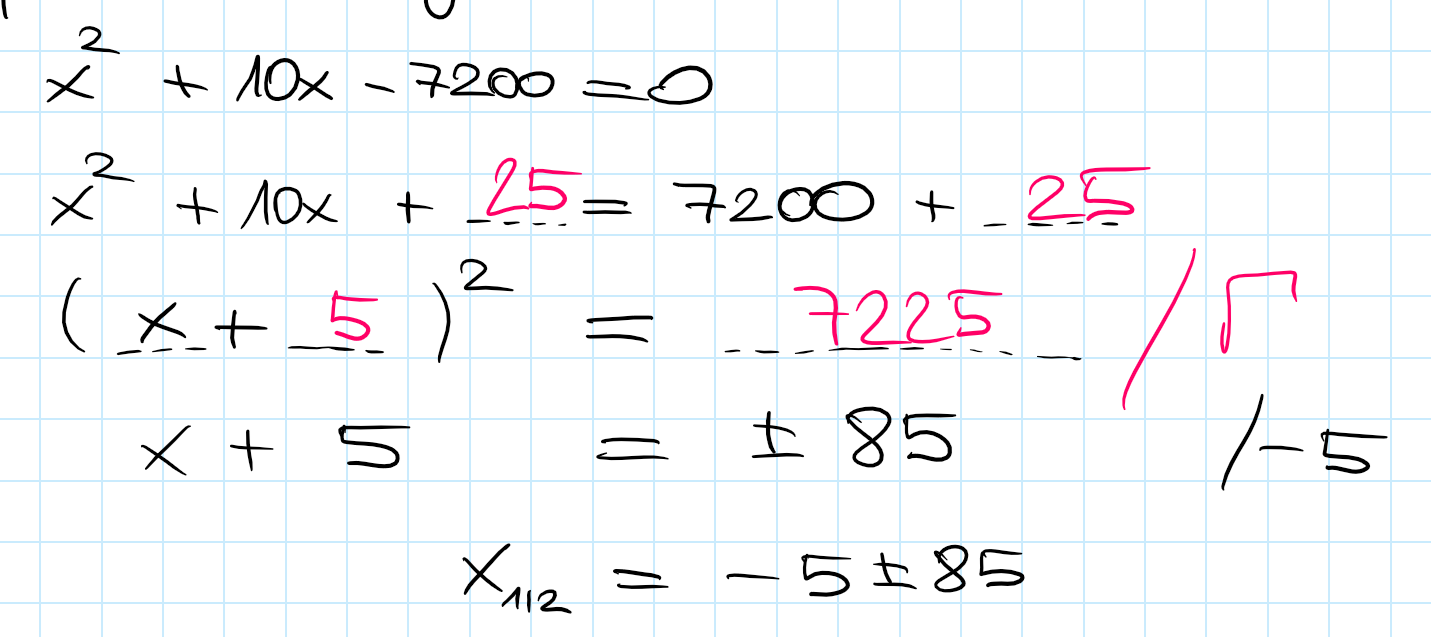 x² + 10x - 7200 = 0
x² + 10x + 25 = 7200 + 25
( x + 5 )² = 7225 / √
x + 5 = ± 85 / - 5
x₁,₂ = - 5 ± 85